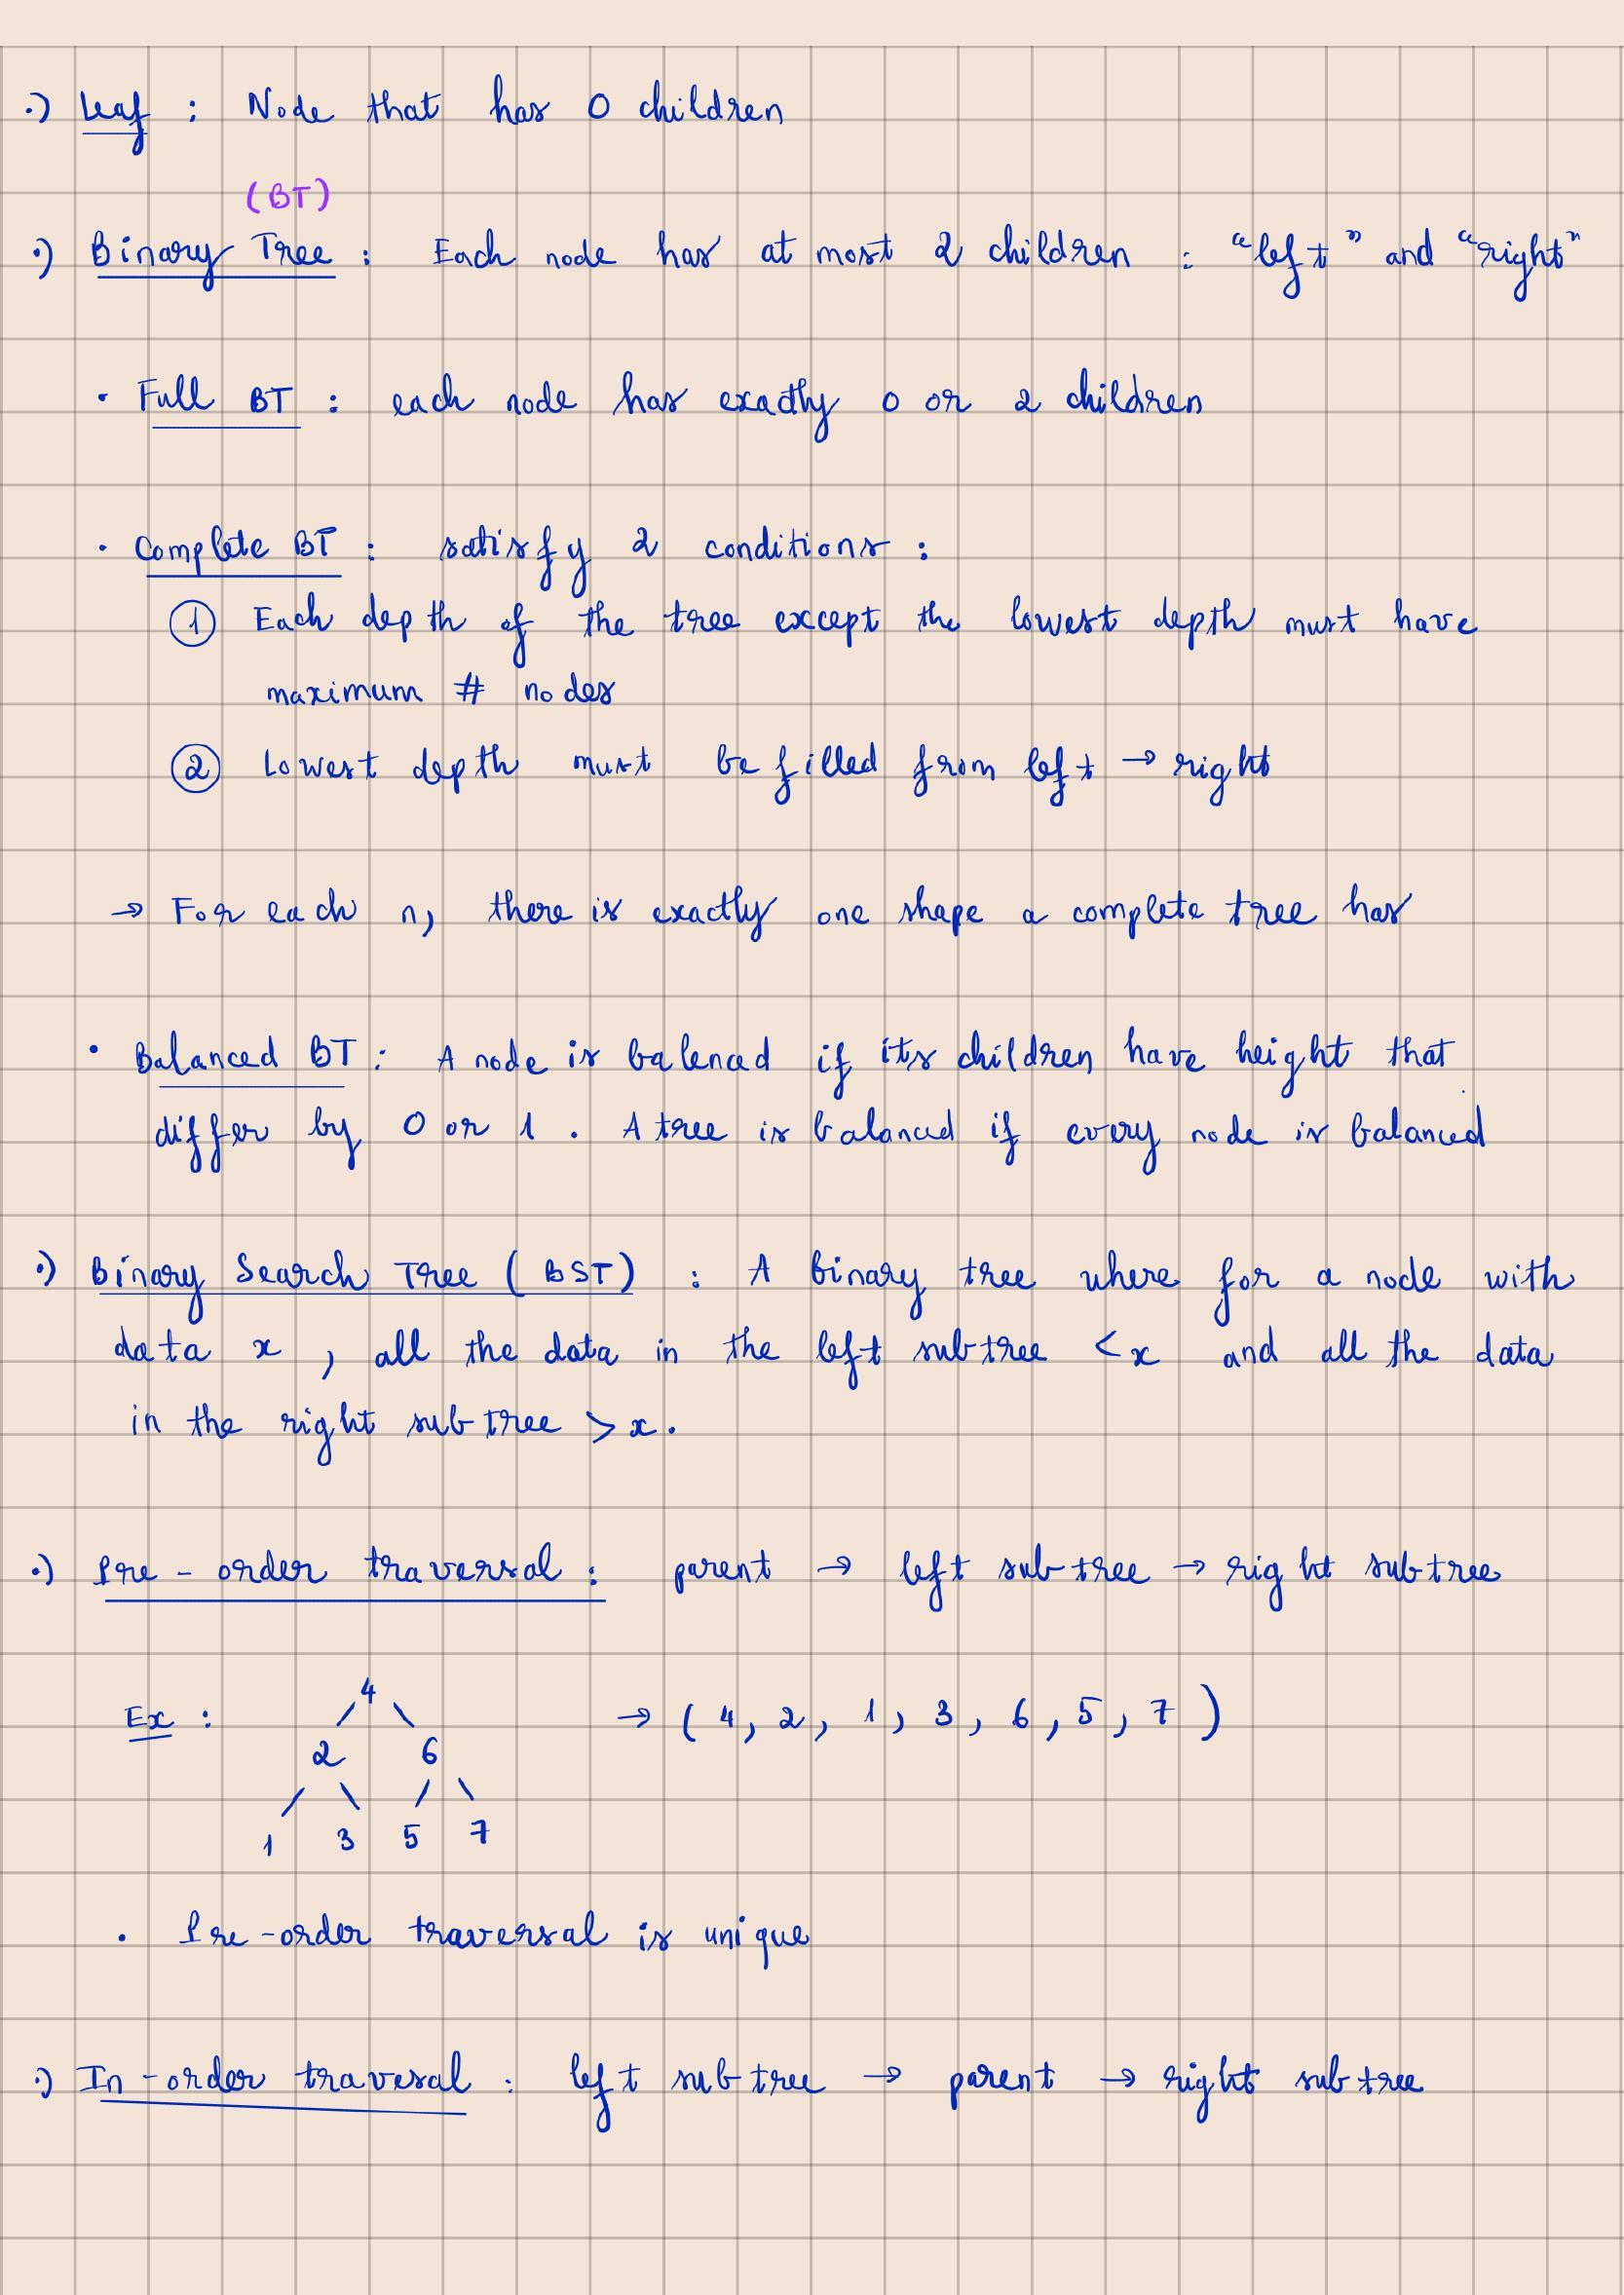 .) Leaf : Node that has 0 children
(BT)
.) Binary Tree : Each node has at most 2 children : "left" and "right"
• Full BT : each node has exactly 0 or 2 children
• Complete BT : satisfy 2 conditions :
① Each depth of the tree except the lowest depth must have
maximum # nodes
② Lowest depth must be filled from left → right
→ For each n, there is exactly one shape a complete tree has
• Balanced BT : A node is balenced if its children have height that
differ by 0 or 1 . A tree is balanced if every node is balanced
.) Binary Search Tree ( BST) : A binary tree where for a node with
data x , all the data in the left subtree < x and all the data
in the right subtree > x .
.) Pre - order traversal : parent → left subtree → right subtree
Ex : 4 → ( 4, 2, 1, 3, 6, 5, 7 )
2 6
1 3 5 7
. Pre-order traversal is unique
.) In-order travesal : left subtree → parent → right subtree